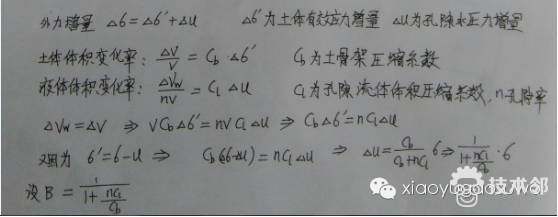 外力增量 Δ6=Δ6'+Δu Δ6'为土体有效应力增量 Δu为孔隙水正力增量
土体体积变化率: ΔV/V = Cb·Δ6' Cb为土骨架压缩系数
液体体积变化率: ΔVw/nV = Cl Δu Cl为孔隙流体体积压缩系数,n孔隙率
ΔVw=ΔV ⇒ VCbΔ6'=nVClΔu ⇒ CbΔ6'=nClΔu
又因为 6'=6-u ⇒ Cb(6-Δu)=nClΔu ⇒ Δu=Cb/(Cb+nCl) 6 ⇒ 1/(1+nCl/Cb)·6
设B=1/(1+nCl/Cb)
技术邻